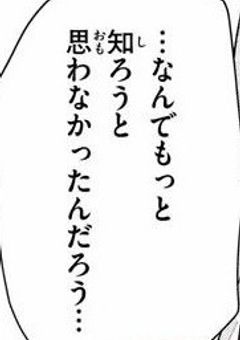 …なんでもっと
知ろうと
思わなかったんだろう…